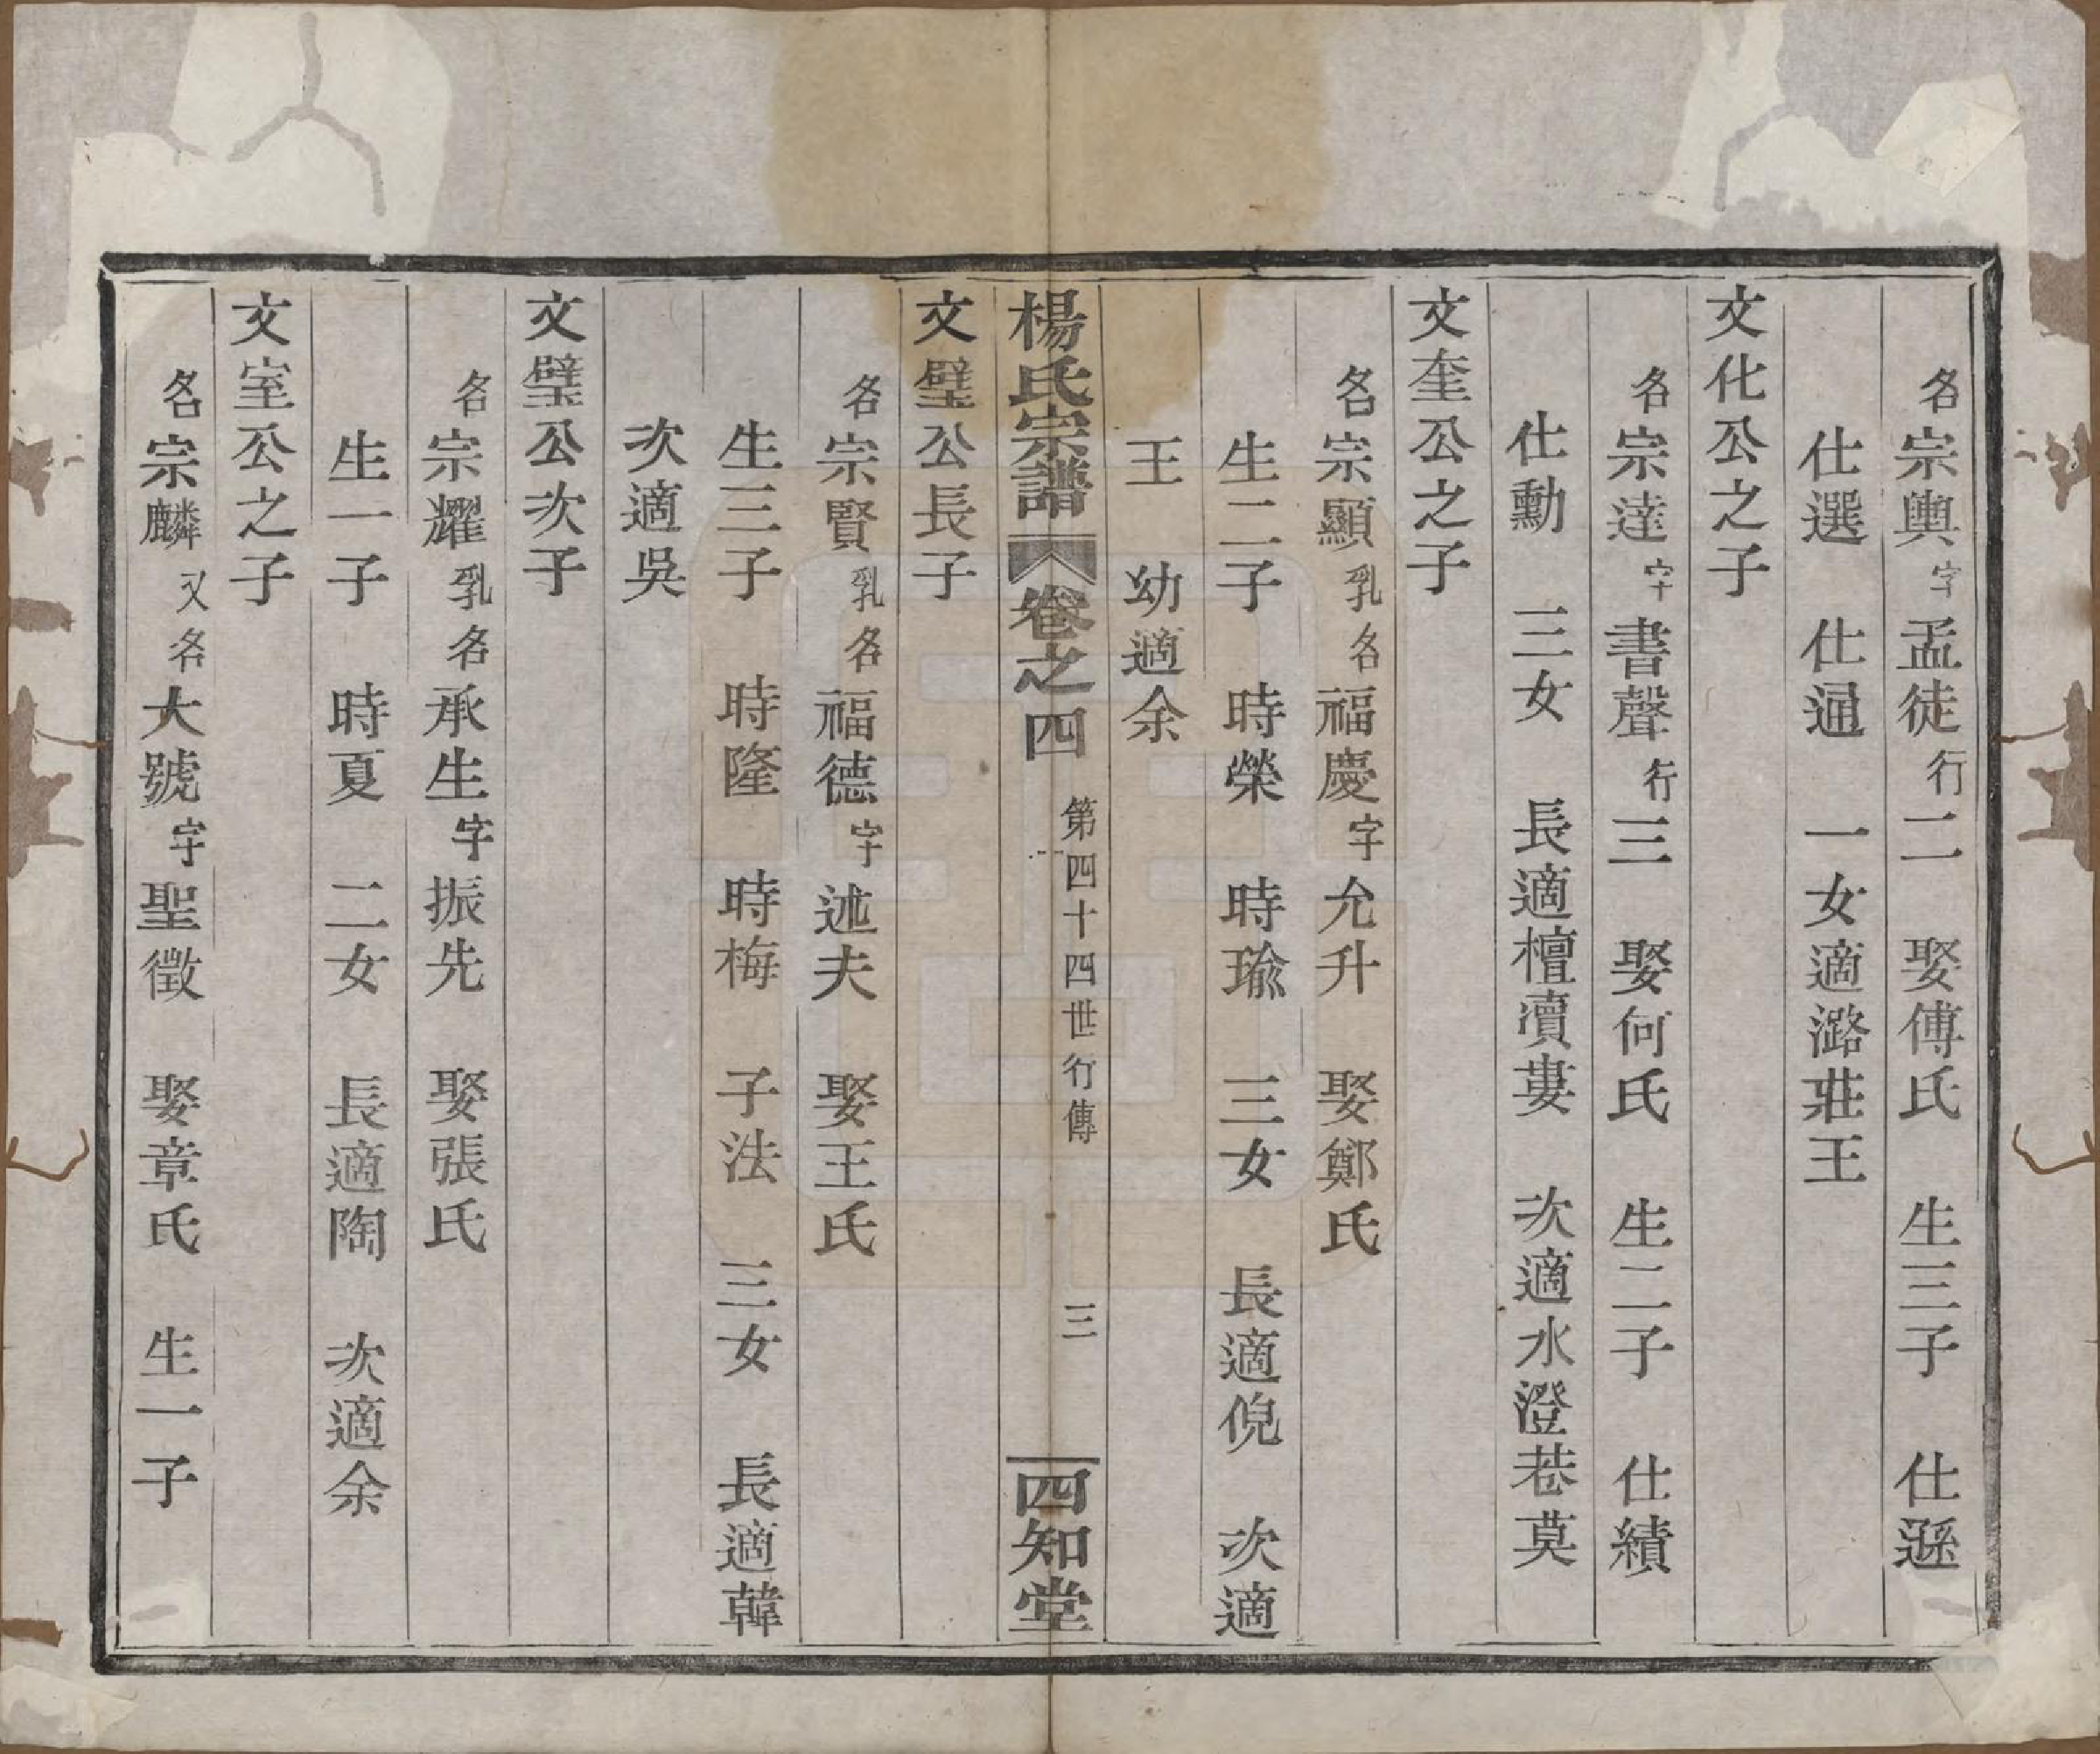 名宗輿字孟徒行二　娶傅氏　生三子　仕遜
仕選　仕通　一女適潞莊王
文化公之子
名宗達字書聲行三　娶何氏　生二子　仕績
仕勳　三女　長適檀瀆婁　次適水澄巷莫
文奎公之子
名宗顯乳名福慶字允升　娶鄭氏
生二子　時榮　時瑜　三女　長適倪　次適
王　幼適余
楊氏宗譜　卷之四　第四十四世行傳　三　四知堂
文璧公長子
名宗賢乳名福德字述夫　娶王氏
生三子　時隆　時梅　子法　三女　長適韓
次適吳
文璧公次子
名宗耀乳名承生字振先　娶張氏
生一子　時夏　二女　長適陶　次適余
文室公之子
名宗麟又名大號字聖徵　娶章氏　生一子